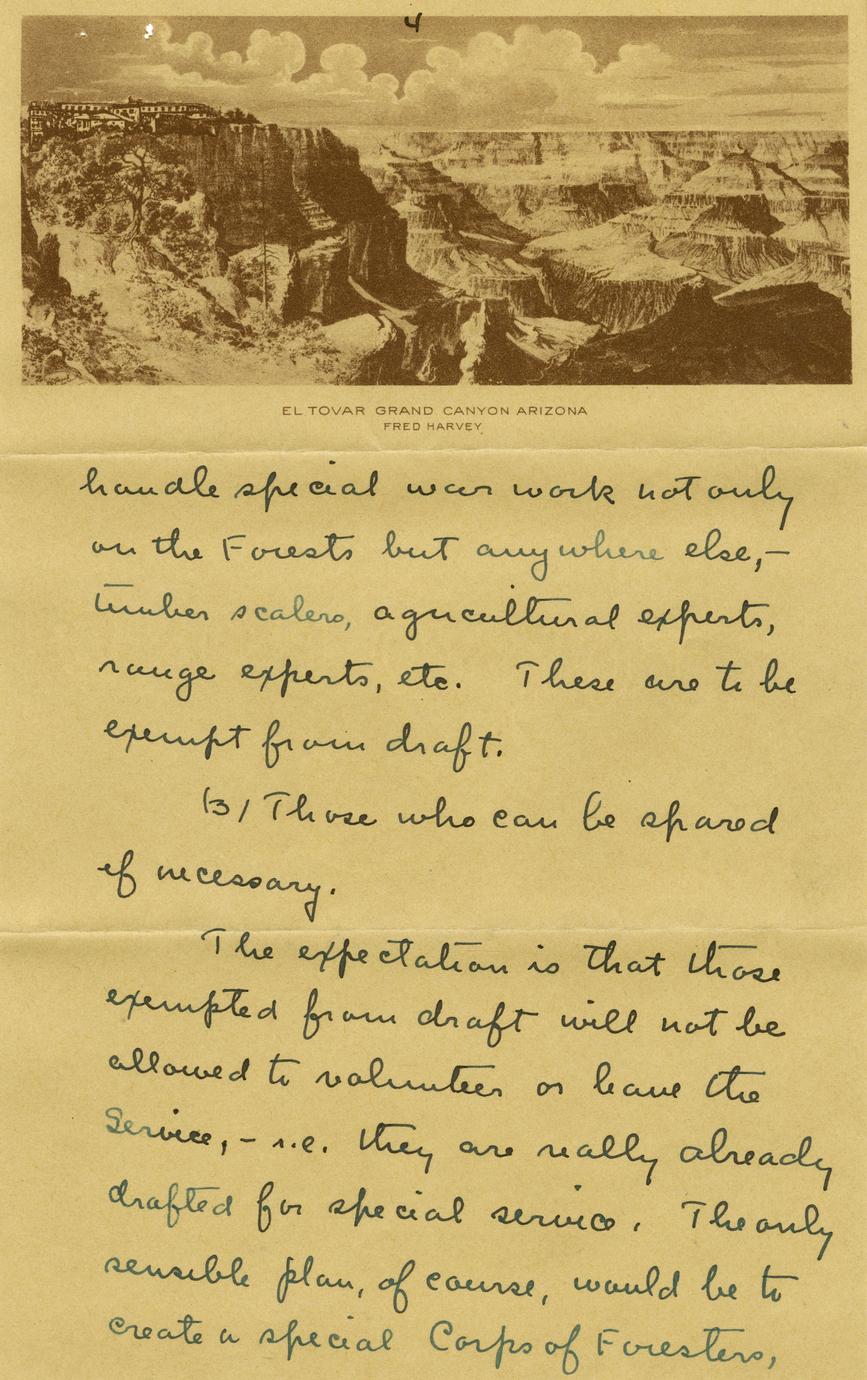 4
EL TOVAR GRAND CANYON ARIZONA
FRED HARVEY
handle special war work not only
on the Forests but anywhere else,-
timber scalers, agricultural experts,
range experts, etc. These are to be
exempt from draft.
(3) Those who can be spared
if necessary.
The expectation is that those
exempted from draft will not be
allowed to volunteer or leave the
Service,- i.e. they are really already
drafted for special service. The only
sensible plan, of course, would be to
create a special Corps of Foresters,